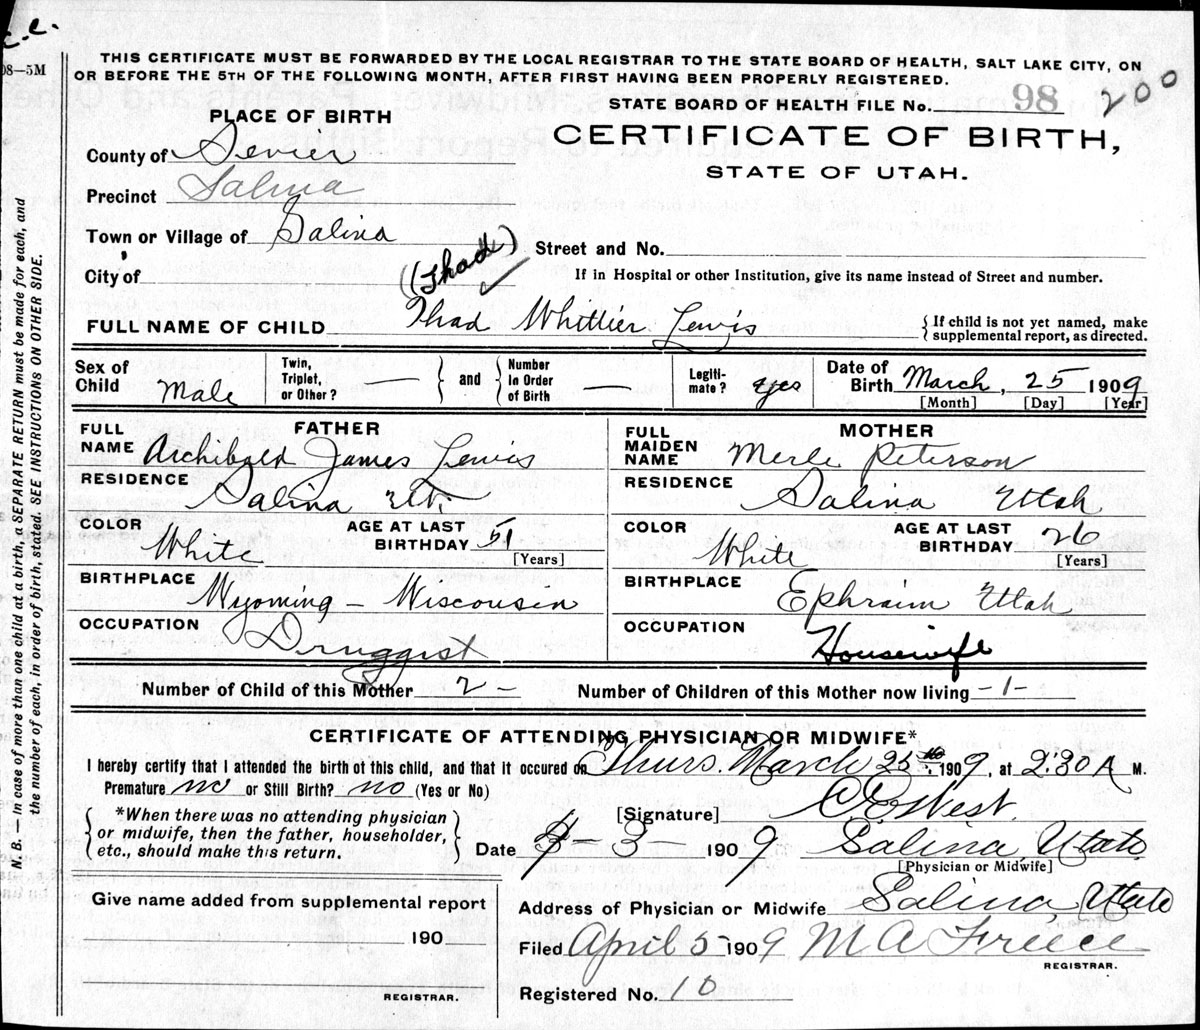 C.C.
08—5M
THIS CERTIFICATE MUST BE FORWARDED BY THE LOCAL REGISTRAR TO THE STATE BOARD OF HEALTH, SALT LAKE CITY, ON
OR BEFORE THE 5TH OF THE FOLLOWING MONTH, AFTER FIRST HAVING BEEN PROPERLY REGISTERED.
STATE BOARD OF HEALTH FILE No. 98 200
PLACE OF BIRTH
CERTIFICATE OF BIRTH,
STATE OF UTAH.
County of Sevier
Precinct Salina
Town or Village of Salina
Street and No.
City of
If in Hospital or other Institution, give its name instead of Street and number.
(Thad)
FULL NAME OF CHILD Thad Whittier Lewis
{ If child is not yet named, make
supplemental report, as directed.
Sex of Child Male
Twin, Triplet, or Other? — } and { Number In Order of Birth —
Legiti-mate? yes
Date of Birth March, 25 1909
[Month] [Day] [Year]
FATHER
FULL NAME Archibald James Lewis
RESIDENCE Salina Ut.
COLOR White
AGE AT LAST BIRTHDAY 51 [Years]
BIRTHPLACE Wyoming – Wisconsin
OCCUPATION Druggist
MOTHER
FULL MAIDEN NAME Merle Peterson
RESIDENCE Salina Utah
COLOR White
AGE AT LAST BIRTHDAY 26 [Years]
BIRTHPLACE Ephraim Utah
OCCUPATION Housewife
Number of Child of this Mother 2 –
Number of Children of this Mother now living – 1 –
CERTIFICATE OF ATTENDING PHYSICIAN OR MIDWIFE*
I hereby certify that I attended the birth of this child, and that it occured on Thurs. March 25th, 1909, at 2:30 A M.
Premature no or Still Birth? no (Yes or No)
[Signature] C E West.
{ *When there was no attending physician
or midwife, then the father, householder,
etc., should make this return. }
Date – 3 – 1909 Salina Utah
[Physician or Midwife]
Give name added from supplemental report
190
REGISTRAR.
Address of Physician or Midwife Salina, Utah
Filed April 5 1909 M A Freece
REGISTRAR.
Registered No. 10
N. B. — In case of more than one child at a birth, a SEPARATE RETURN must be made for each, and
the number of each, in order of birth, stated. SEE INSTRUCTIONS ON OTHER SIDE.